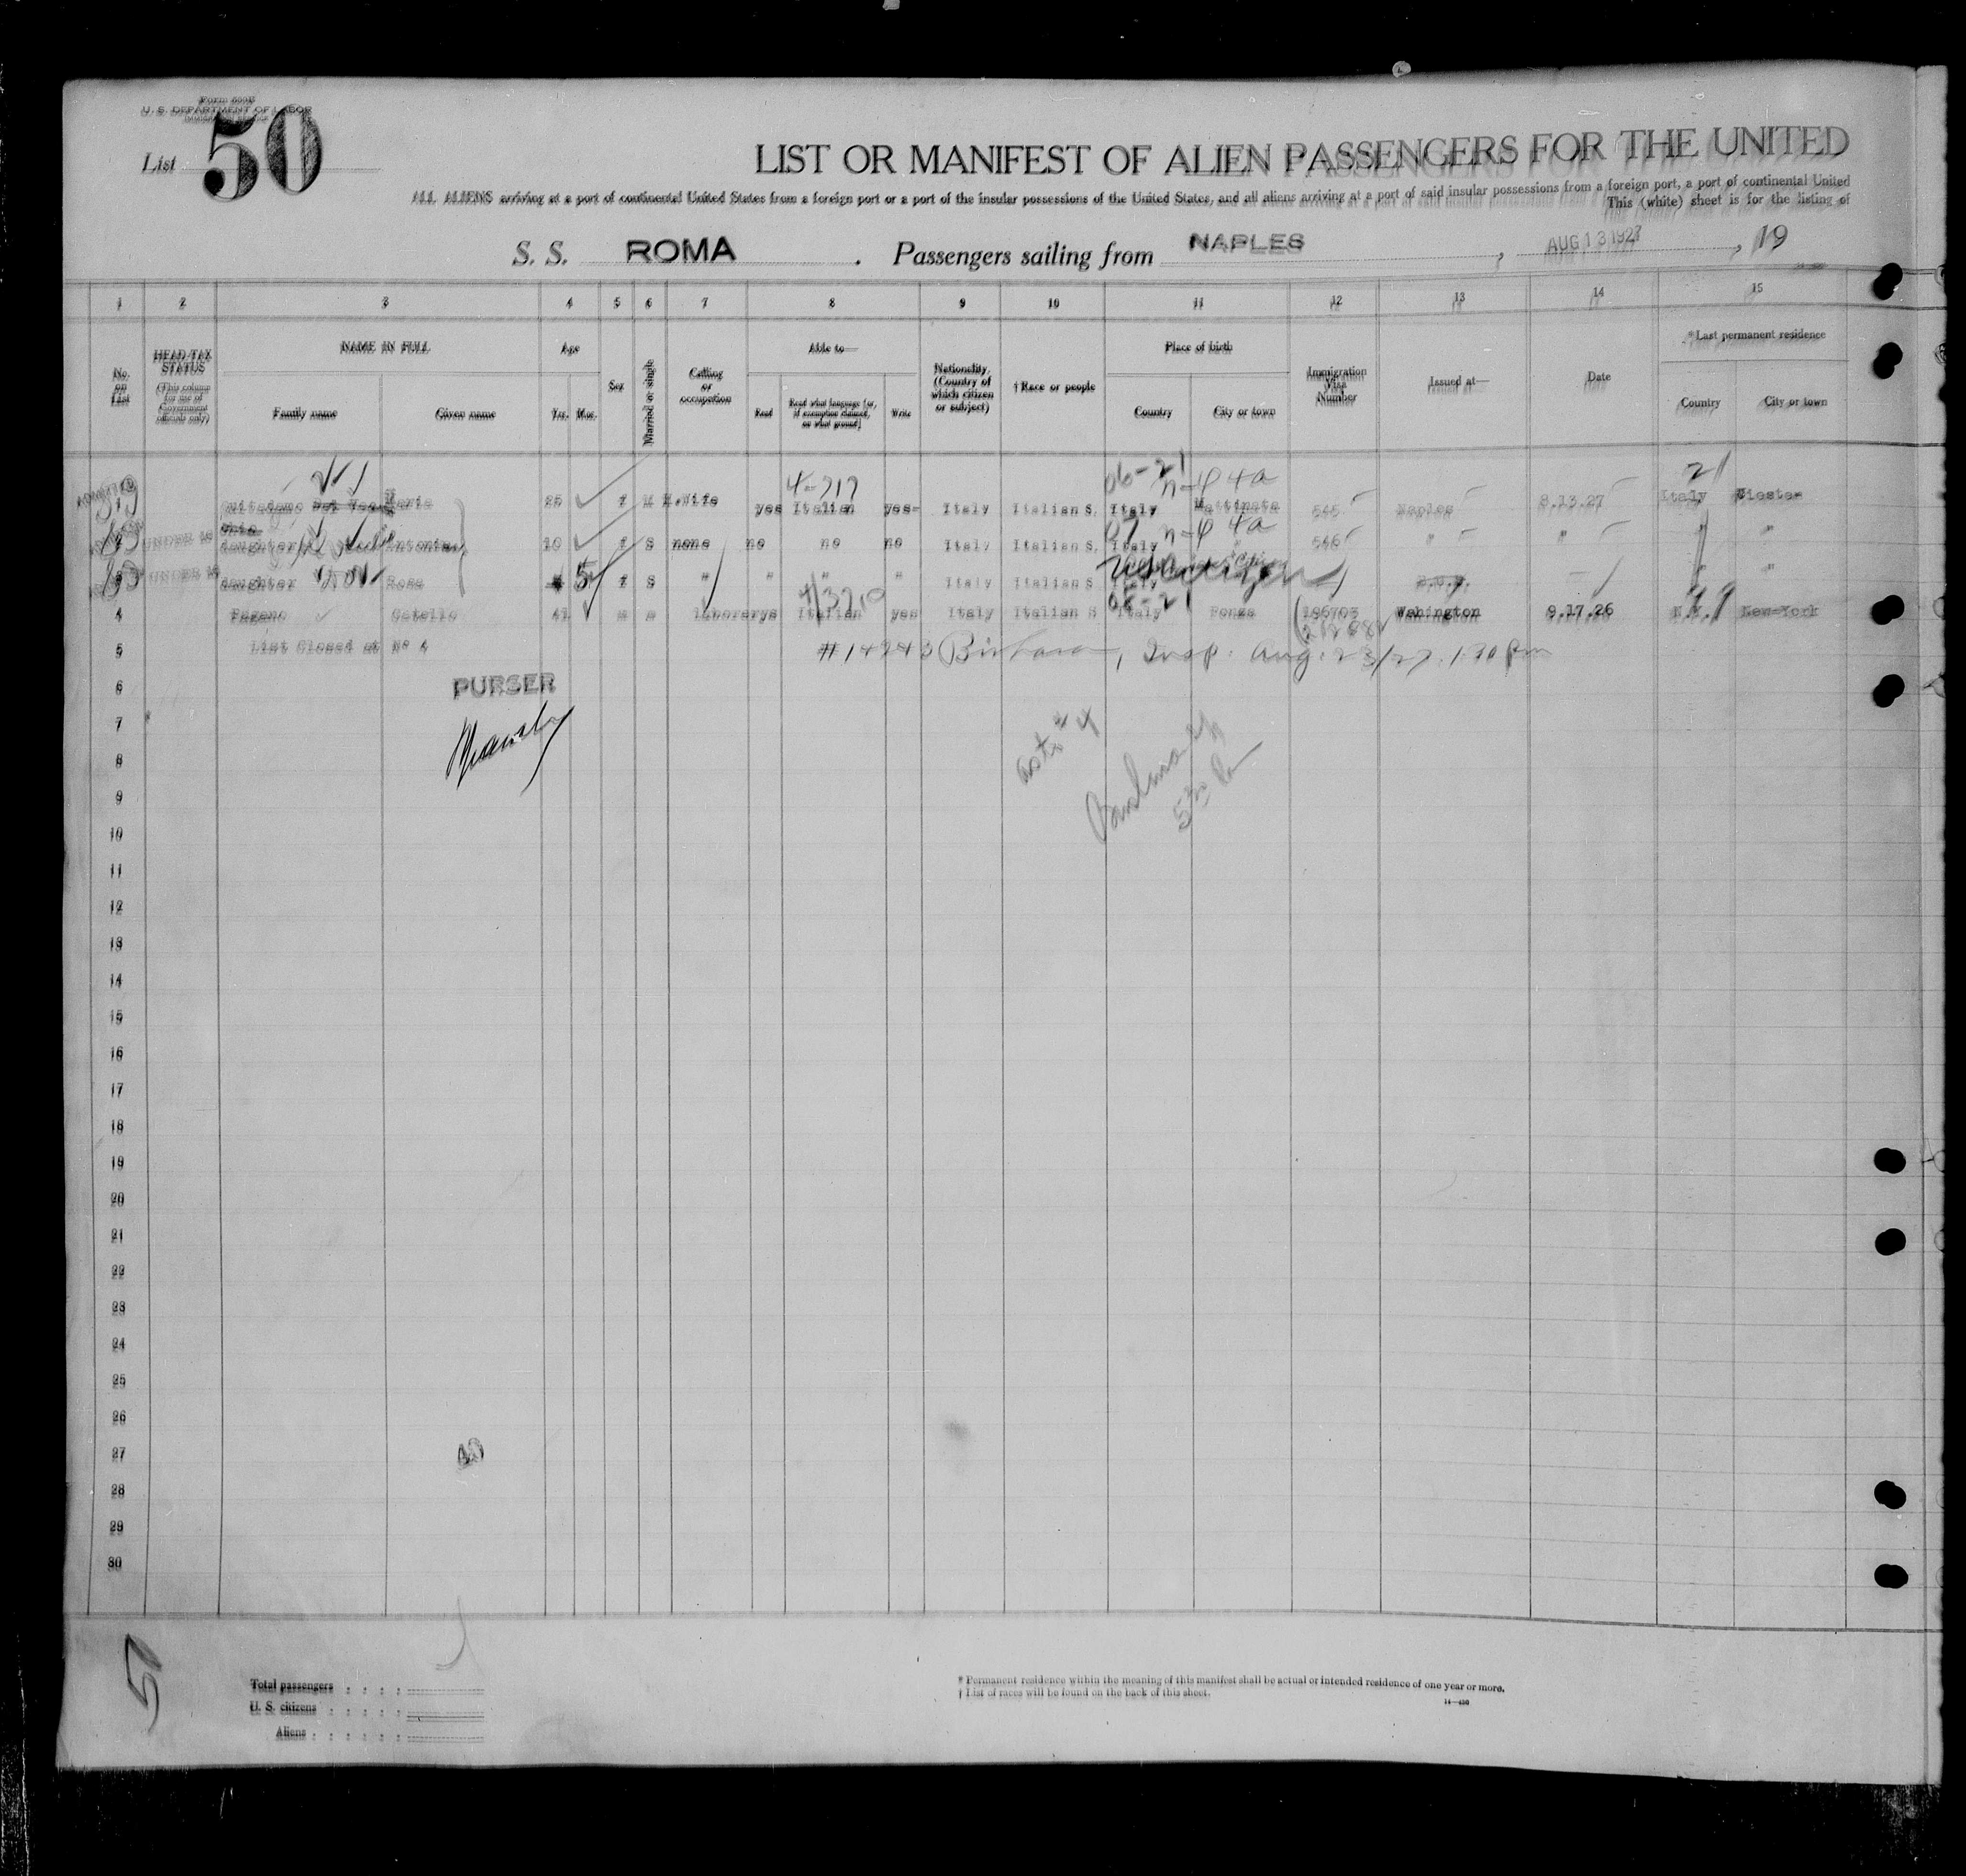 Form 500
U. S. DEPARTMENT OF LABOR
List 50
LIST OR MANIFEST OF ALIEN PASSENGERS FOR THE UNITED
ALL ALIENS arriving at a port of continental United States from a foreign port or a port of the insular possessions of the United States, and all aliens arriving at a port of said insular possessions from a foreign port, a port of continental United
This (white) sheet is for the listing of
S. S. ROMA . Passengers sailing from NAPLES , AUG 13 1927 , 19
1 2 3 4 5 6 7 8 9 10 11 12 13 14 15
No. on List
HEAD-TAX STATUS (This column for use of Government officials only)
NAME IN FULL
Family name Given name
Age
Yrs. Mos.
Sex
Married or single
Calling or occupation
Able to—
Read Read what language [or, if exemption claimed, on what ground] Write
Nationality. (Country of which citizen or subject)
† Race or people
Place of birth
Country City or town
Immigration Visa Number
Issued at—
Date
* Last permanent residence
Country City or town
Maria 25 f M H.Wife yes Italian yes Italy Italian S. Italy Mattinata 545 Naples 8.13.27 Italy
UNDER 16 daughter Antonia 10 f S none no no no Italy Italian S. Italy " 546 " " " "
UNDER 16 daughter Rosa 5 f S " " " " Italy Italian S Italy "
4 Pagano Catello 41 m m laborer yes Italian yes Italy Italian S Italy Ponza 196703 Wahington 9.17.26 N.Y. New-York
5 List Closed at No 4
#14243 Insp. Aug. 23/27 1.30 pm
6 PURSER
7
8
9
10
11
12
13
14
15
16
17
18
19
20
21
22
23
24
25
26
27
28
29
30
50
Total passengers
U. S. citizens
Aliens
* Permanent residence within the meaning of this manifest shall be actual or intended residence of one year or more.
† List of races will be found on the back of this sheet.
14—430